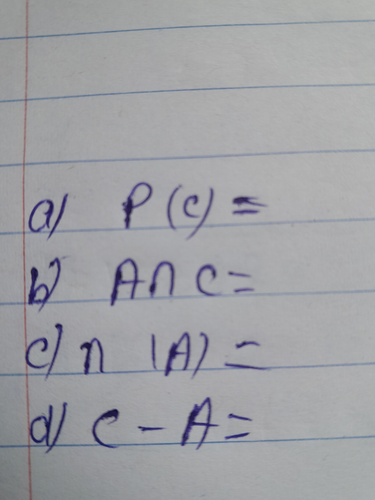 a) P(C) =
b) A∩C=
c) n (A) =
d) C - A =